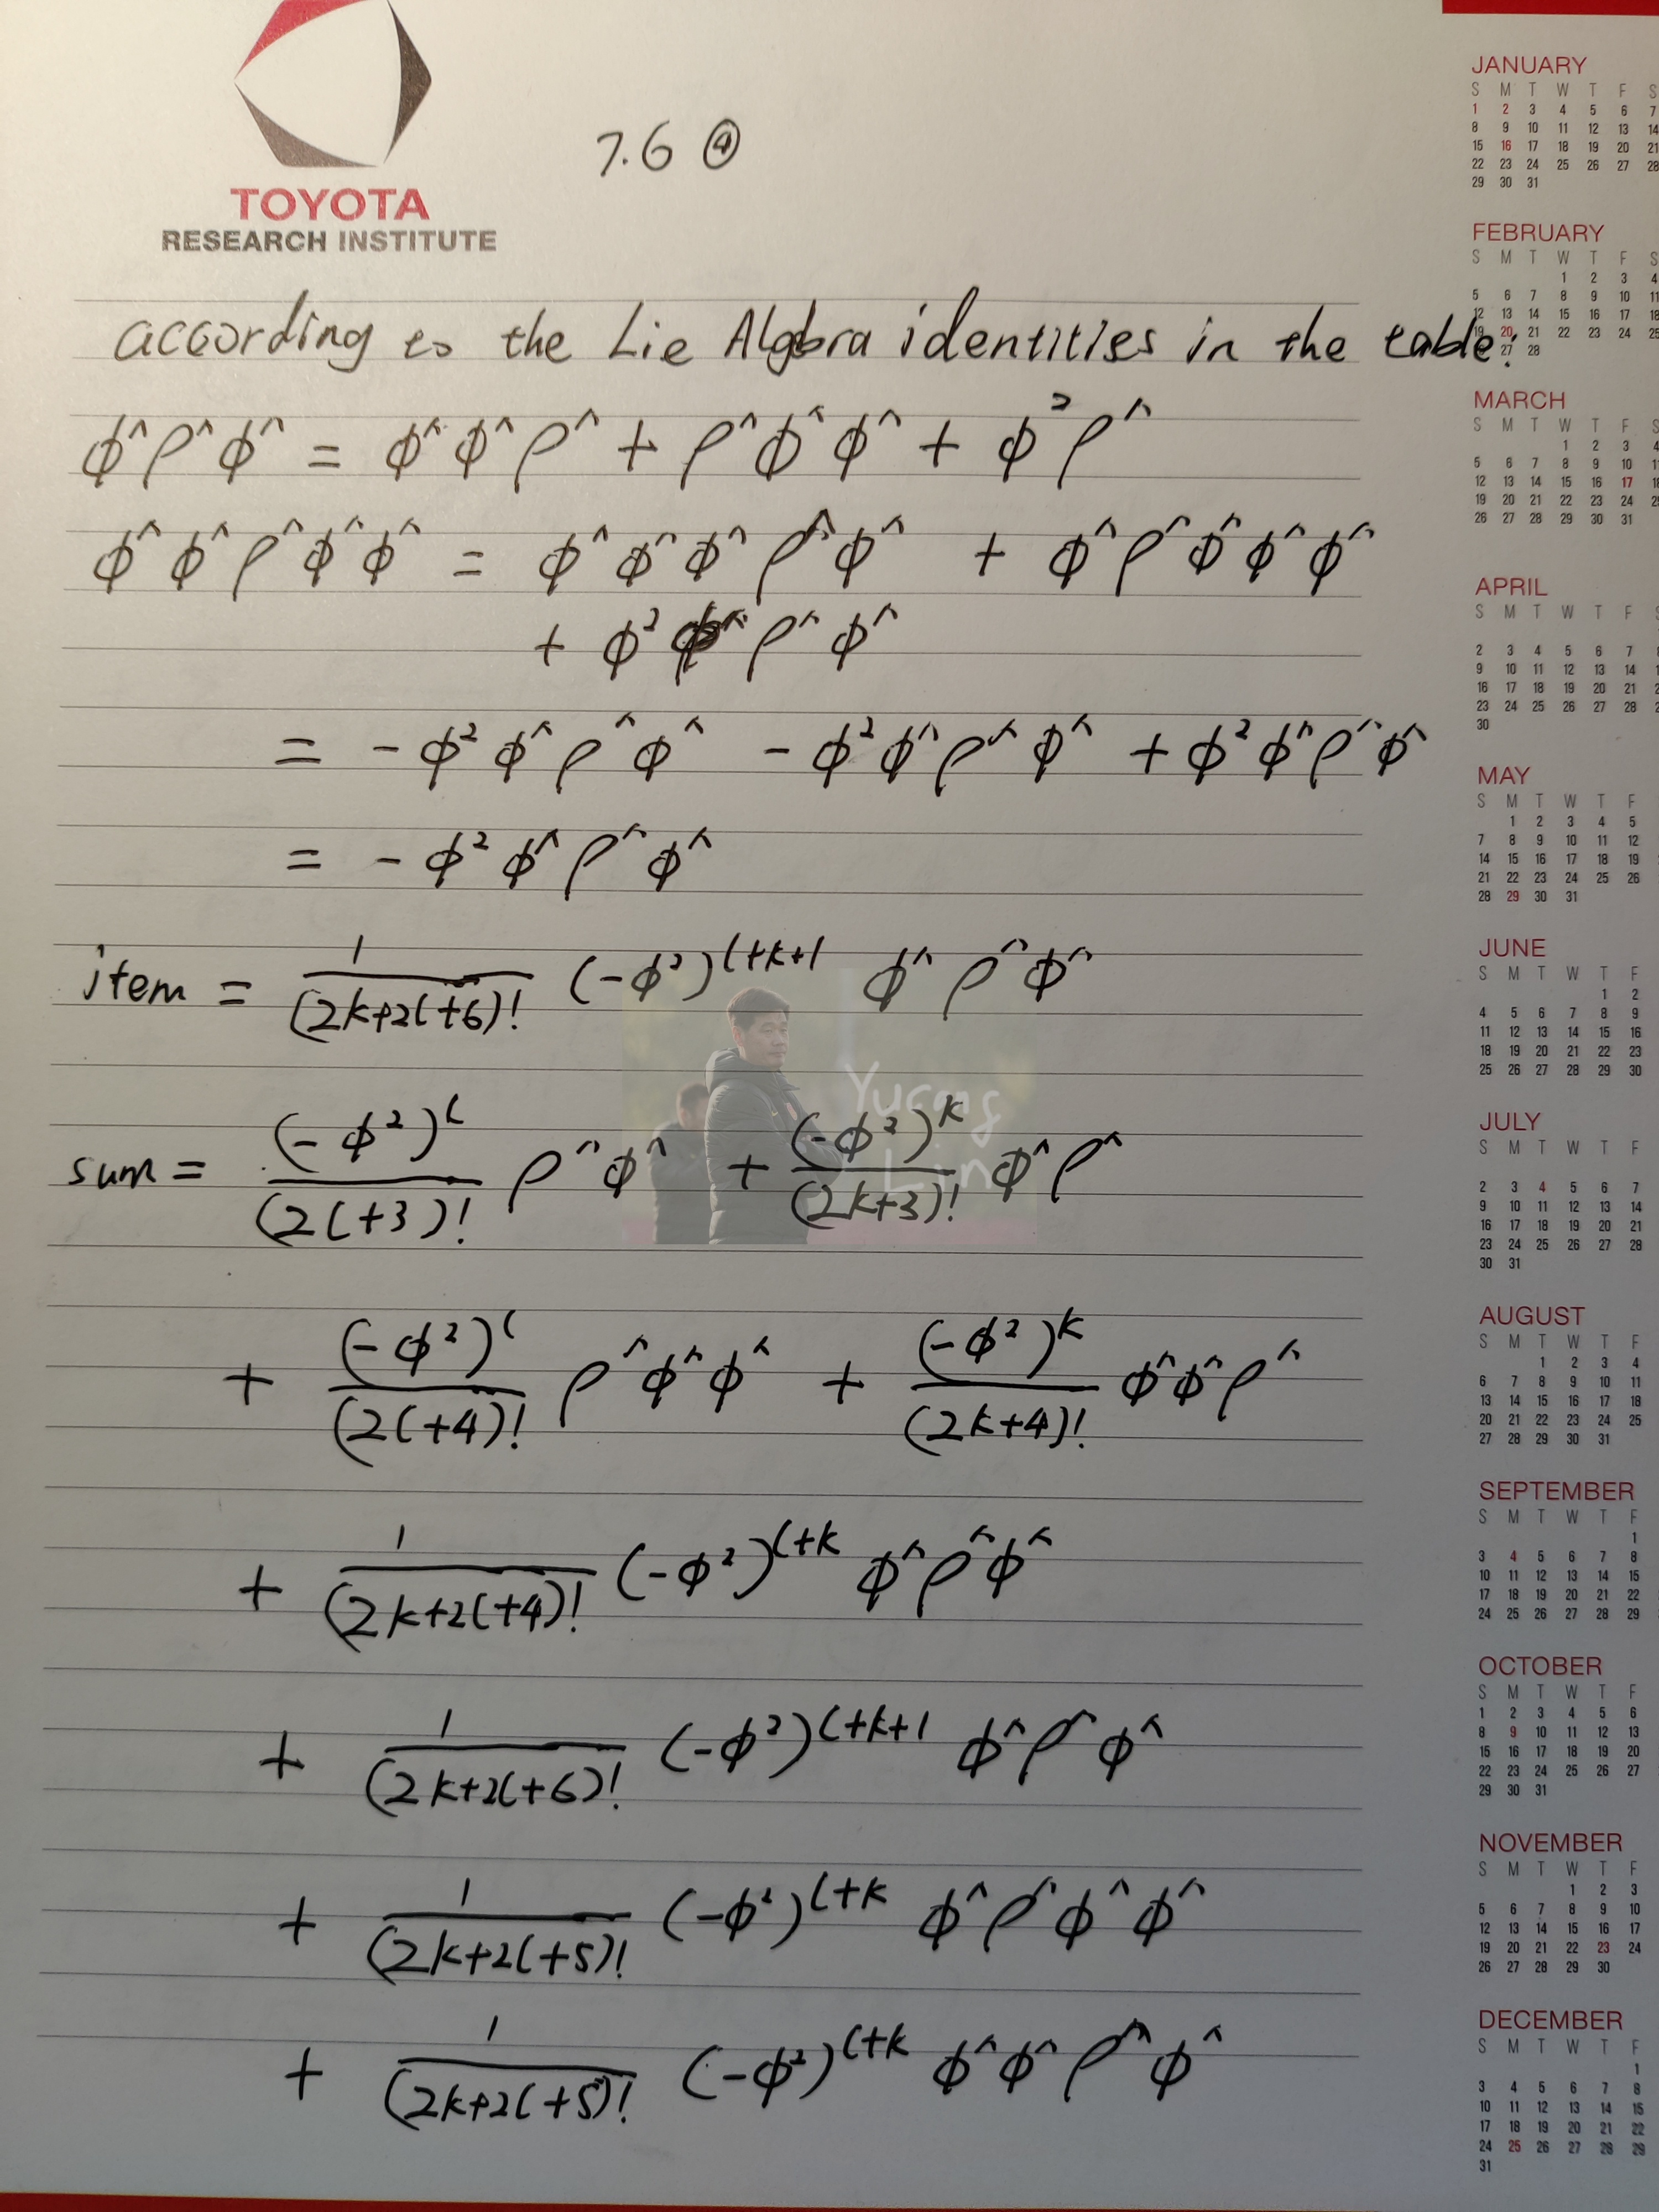 TOYOTA
RESEARCH INSTITUTE
7.6 ④
according to the Lie Algebra identities in the table:
ϕ^ρ^ϕ^ = ϕ^ϕ^ρ^ + ρ^ϕ^ϕ^ + ϕ²ρ^
ϕ^ϕ^ρ^ϕ^ϕ^ = ϕ^ϕ^ϕ^ρ^ϕ^ + ϕ^ρ^ϕ^ϕ^ϕ^
+ ϕ² ϕ^ρ^ϕ^
= -ϕ²ϕ^ρ^ϕ^ - ϕ²ϕ^ρ^ϕ^ + ϕ²ϕ^ρ^ϕ^
= -ϕ²ϕ^ρ^ϕ^
item = 1/(2k+2l+6)! (-ϕ²)^(l+k+1) ϕ^ρ^ϕ^
sum = (-ϕ²)^l/(2l+3)! ρ^ϕ^ + (-ϕ²)^k/(2k+3)! ϕ^ρ^
+ (-ϕ²)^l/(2l+4)! ρ^ϕ^ϕ^ + (-ϕ²)^k/(2k+4)! ϕ^ϕ^ρ^
+ 1/(2k+2l+4)! (-ϕ²)^(l+k) ϕ^ρ^ϕ^
+ 1/(2k+2l+6)! (-ϕ²)^(l+k+1) ϕ^ρ^ϕ^
+ 1/(2k+2l+5)! (-ϕ²)^(l+k) ϕ^ρ^ϕ^ϕ^
+ 1/(2k+2l+5)! (-ϕ²)^(l+k) ϕ^ϕ^ρ^ϕ^
Yucong
Lin
JANUARY
S M T W T F S
1 2 3 4 5 6 7
8 9 10 11 12 13 14
15 16 17 18 19 20 21
22 23 24 25 26 27 28
29 30 31
FEBRUARY
S M T W T F S
1 2 3 4
5 6 7 8 9 10 11
12 13 14 15 16 17 18
19 20 21 22 23 24 25
27 28
MARCH
S M T W T F S
1 2 3 4
5 6 7 8 9 10 11
12 13 14 15 16 17
19 20 21 22 23 24 25
26 27 28 29 30 31
APRIL
S M T W T F S
2 3 4 5 6 7
9 10 11 12 13 14
16 17 18 19 20 21
23 24 25 26 27 28
30
MAY
S M T W T F
1 2 3 4 5
7 8 9 10 11 12
14 15 16 17 18 19
21 22 23 24 25 26
28 29 30 31
JUNE
S M T W T F
1 2
4 5 6 7 8 9
11 12 13 14 15 16
18 19 20 21 22 23
25 26 27 28 29 30
JULY
S M T W T F
2 3 4 5 6 7
9 10 11 12 13 14
16 17 18 19 20 21
23 24 25 26 27 28
30 31
AUGUST
S M T W T F
1 2 3 4
6 7 8 9 10 11
13 14 15 16 17 18
20 21 22 23 24 25
27 28 29 30 31
SEPTEMBER
S M T W T F
1
3 4 5 6 7 8
10 11 12 13 14 15
17 18 19 20 21 22
24 25 26 27 28 29
OCTOBER
S M T W T F
1 2 3 4 5 6
8 9 10 11 12 13
15 16 17 18 19 20
22 23 24 25 26 27
29 30 31
NOVEMBER
S M T W T F
1 2 3
5 6 7 8 9 10
12 13 14 15 16 17
19 20 21 22 23 24
26 27 28 29 30
DECEMBER
S M T W T F
1
3 4 5 6 7 8
10 11 12 13 14 15
17 18 19 20 21 22
24 25 26 27 28 29
31